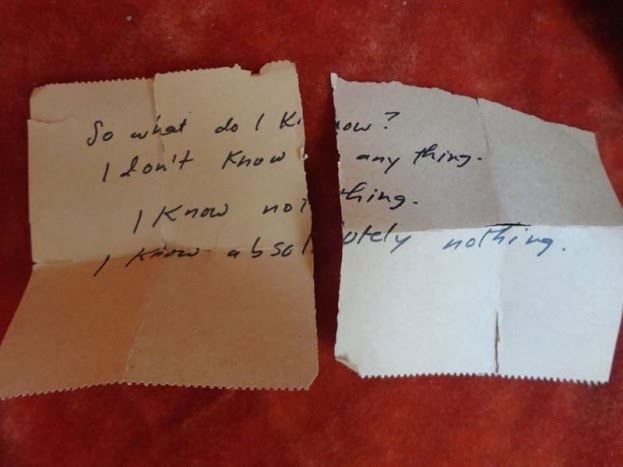 So what do I know?
I don't know any thing.
I know nothing.
I know absolutely nothing.